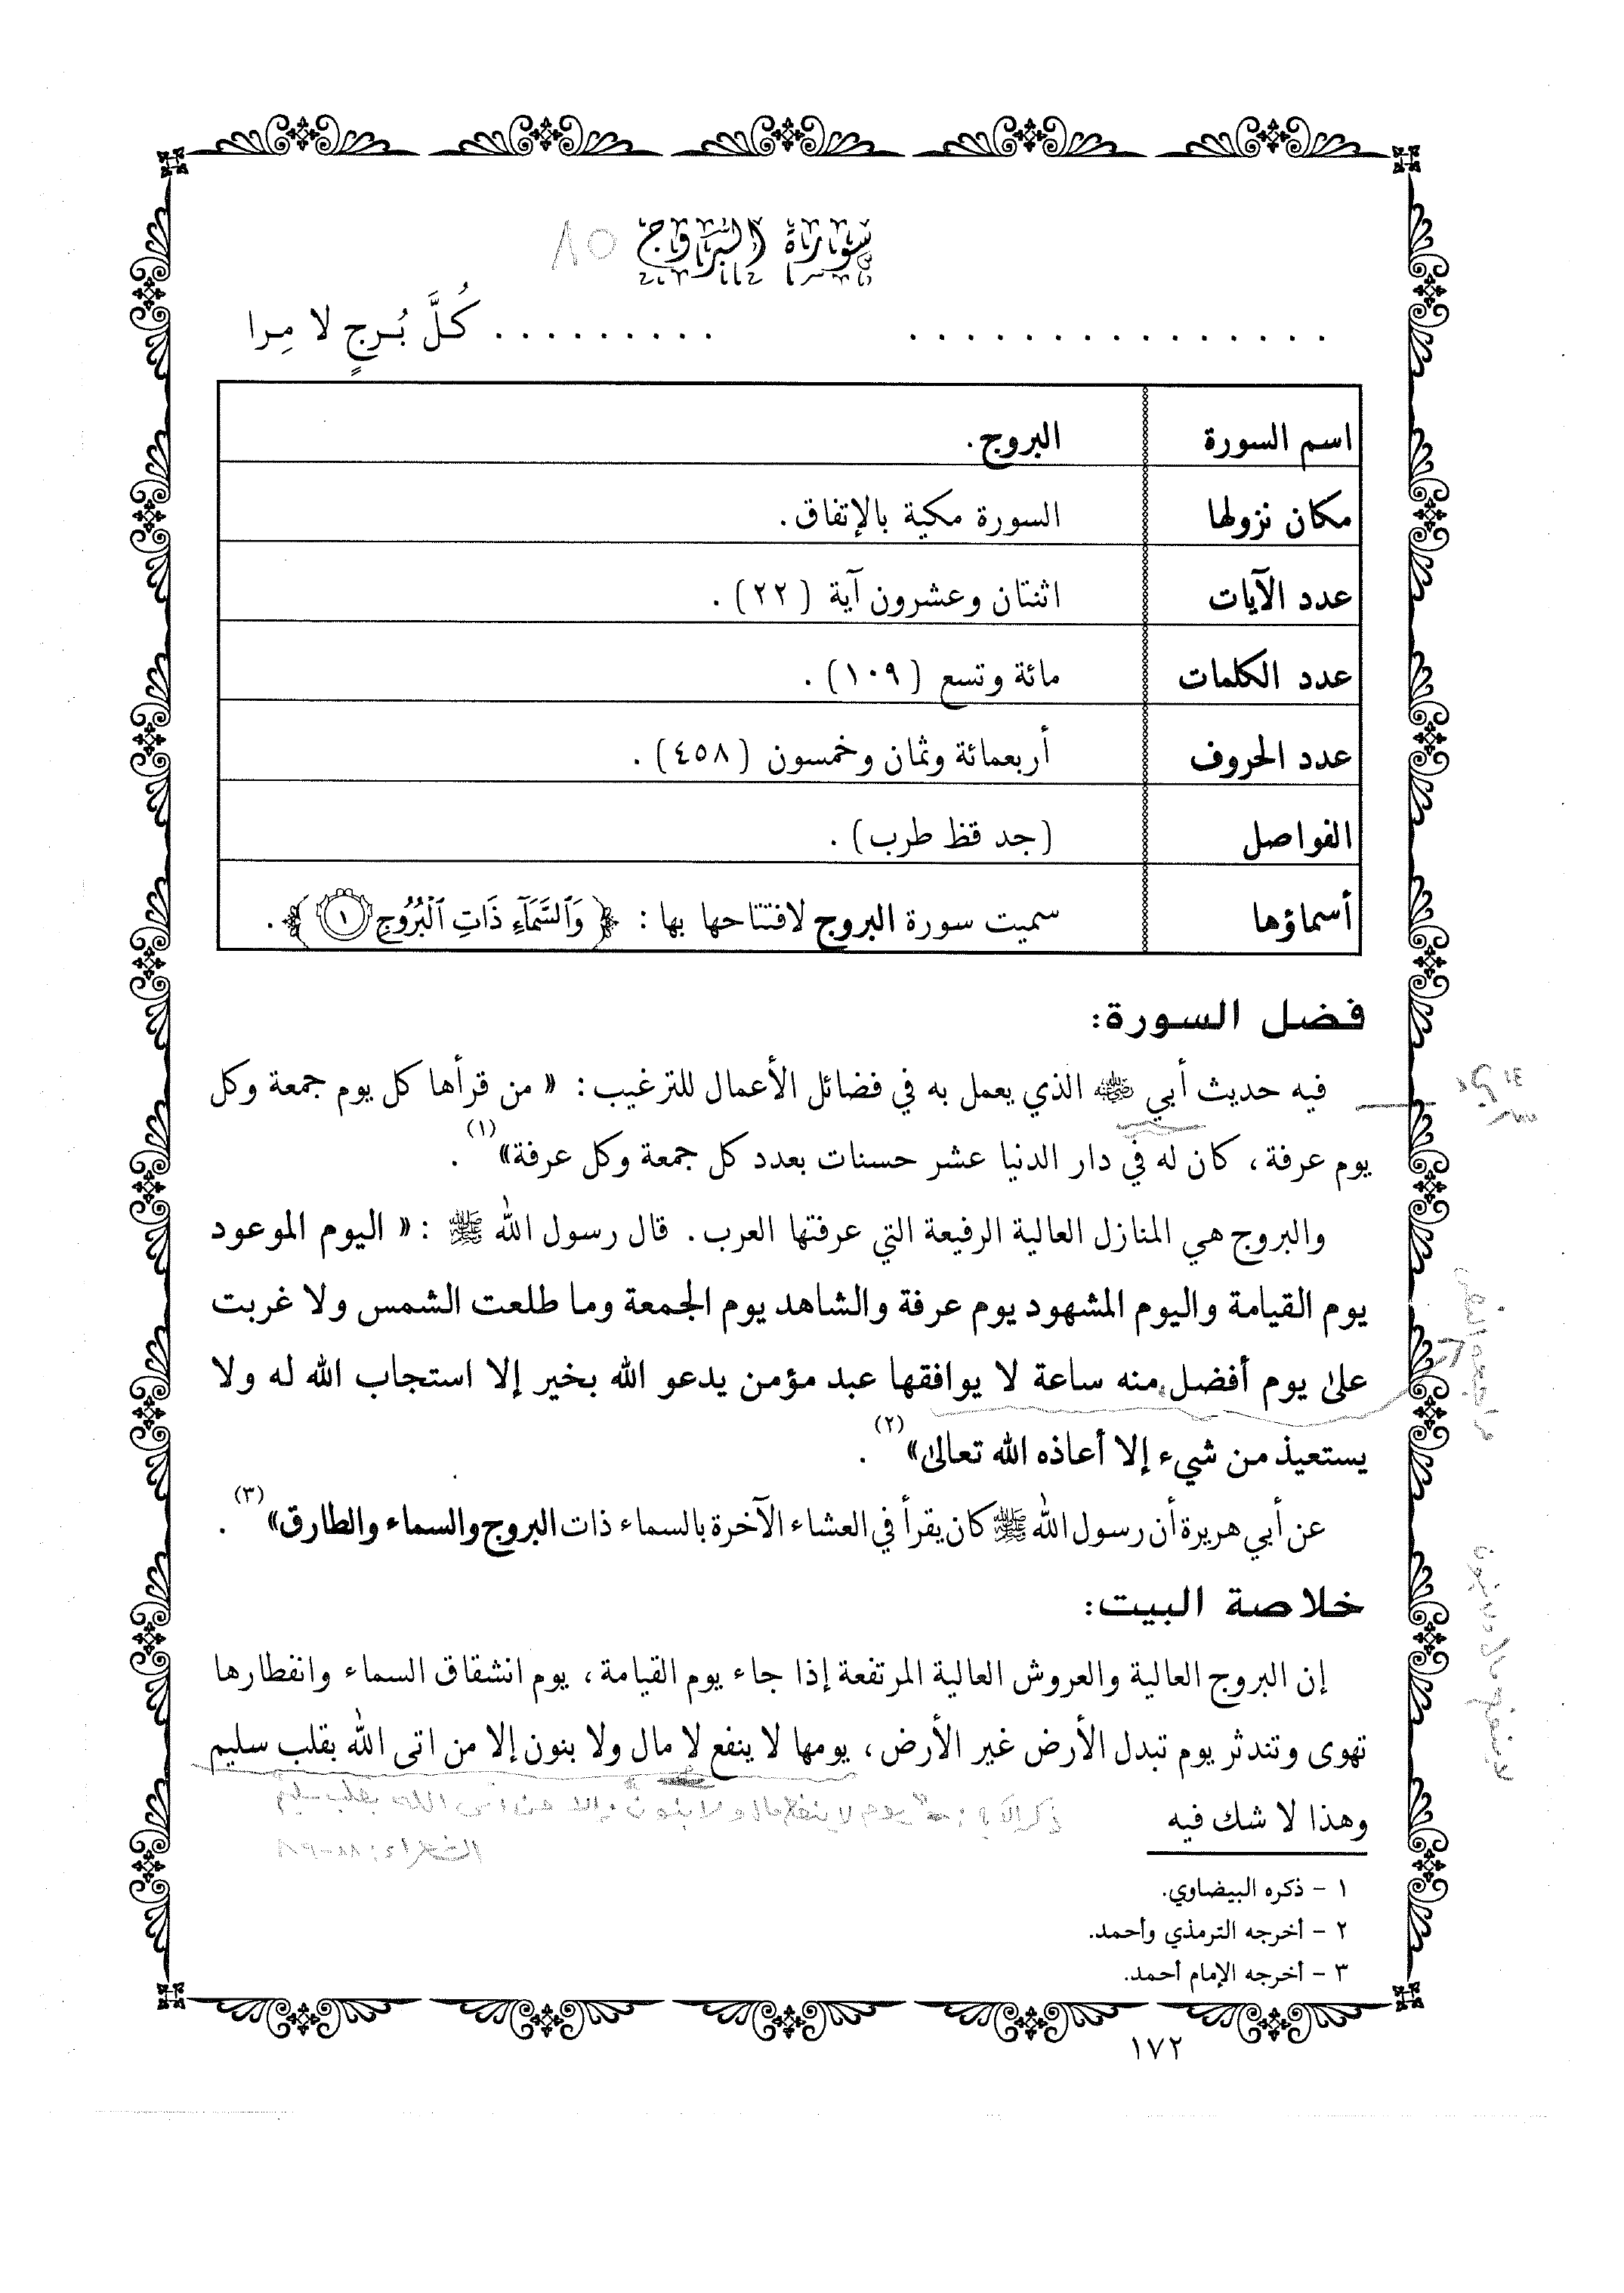 سورة البروج ٨٥
. . . . . . . . . . . . . . . . . . . . . . . . كُلَّ بُرجٍ لا مِرا
اسم السورة البروج.
مكان نزولها السورة مكية بالإتفاق.
عدد الآيات اثنتان وعشرون آية (٢٢).
عدد الكلمات مائة وتسع (١٠٩).
عدد الحروف أربعمائة وثمان وخمسون (٤٥٨).
الفواصل (جد قظ طرب).
أسماؤها سميت سورة البروج لافتتاحها بها: ﴿وَٱلسَّمَآءِ ذَاتِ ٱلْبُرُوجِ ١﴾.
فضل السورة:
فيه حديث أبي رضي الله عنه الذي يعمل به في فضائل الأعمال للترغيب: « من قرأها كل يوم جمعة وكل
يوم عرفة، كان له في دار الدنيا عشر حسنات بعدد كل جمعة وكل عرفة»(١).
والبروج هي المنازل العالية الرفيعة التي عرفتها العرب. قال رسول الله ﷺ :« اليوم الموعود
يوم القيامة واليوم المشهود يوم عرفة والشاهد يوم الجمعة وما طلعت الشمس ولا غربت
على يوم أفضل منه ساعة لا يوافقها عبد مؤمن يدعو الله بخير إلا استجاب الله له ولا
يستعيذ من شيء إلا أعاذه الله تعالى»(٢).
عن أبي هريرة أن رسول الله ﷺ كان يقرأ في العشاء الآخرة بالسماء ذات البروج والسماء والطارق»(٣).
خلاصة البيت:
إن البروج العالية والعروش العالية المرتفعة إذا جاء يوم القيامة، يوم انشقاق السماء وانفطارها
تهوى وتندثر يوم تبدل الأرض غير الأرض، يومها لا ينفع لا مال ولا بنون إلا من اتى الله بقلب سليم
وهذا لا شك فيه
١ - ذكره البيضاوي.
٢ - أخرجه الترمذي وأحمد.
٣ - أخرجه الإمام أحمد.
١٧٢